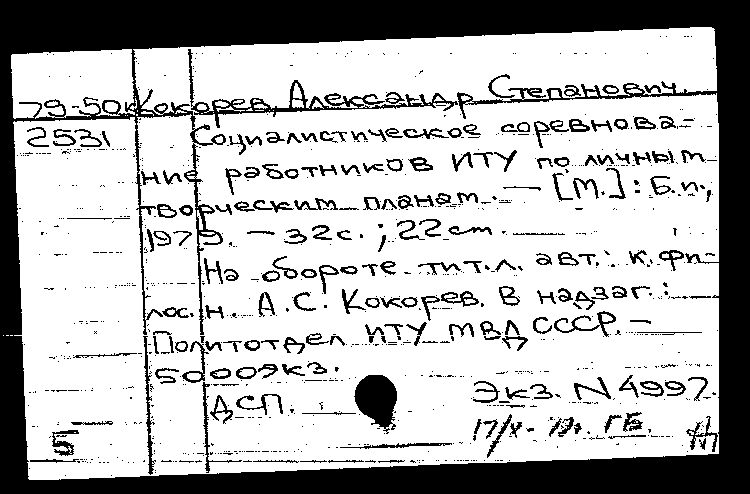 79-50к Кокорев, Александр Степанович.
2531 Социалистическое соревнова-
ние работников ИТУ по личным
творческим планам. — [М.]: Б.и.,
1979. — 32с. ; 22см.
На обороте тит.л. авт.: к. фи-
лос. н. А.С. Кокорев. В надзаг.:
Политотдел ИТУ МВД СССР. —
5000экз.
ДСП. Экз. N 4997.
17/X- 79г. ГБ.